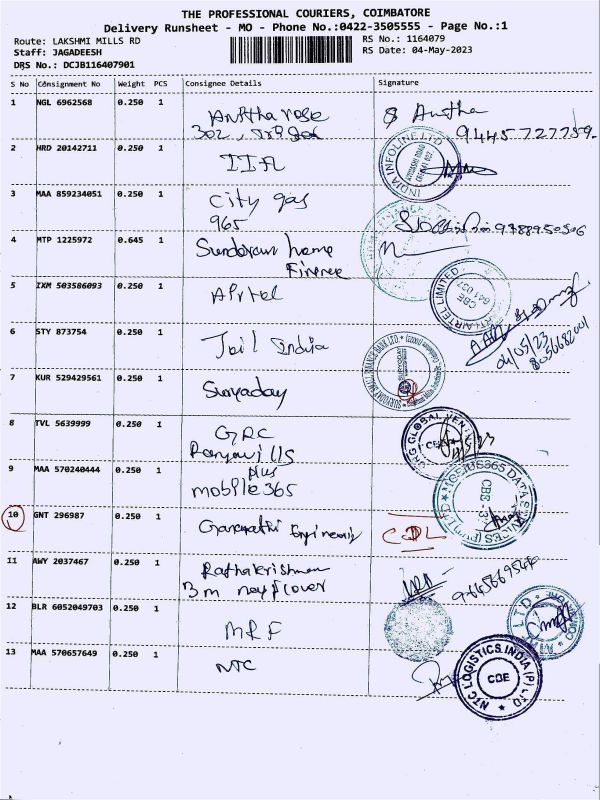 THE PROFESSIONAL COURIERS, COIMBATORE
Delivery Runsheet - MO - Phone No.:0422-3505555 - Page No.:1
Route: LAKSHMI MILLS RD RS No.: 1164079
Staff: JAGADEESH RS Date: 04-May-2023
DRS No.: DCJB116407901
S No Consignment No Weight PCS Consignee Details Signature
1 NGL 6962568 0.250 1 Anitha rose Anitha
302, 9445727759
2 HRD 20142711 0.250 1 IIFL INDIA INFOLINE LTD
3 MAA 859234051 0.250 1 City gas
965 9788950506
4 MTP 1225972 0.645 1 Sundaram home
Finance
5 IXM 503586093 0.250 1 Airtel AIRTEL LIMITED CBE
04/05/23
8056682001
6 STY 873754 0.250 1 Tbil India
7 KUR 529429561 0.250 1 Suryaday SURYODAY SMALL FINANCE BANK LTD.
8 TVL 5639999 0.250 1 GRC GRG GLOBAL VENTURES
9 MAA 570240444 0.250 1 plus
mobile365 MOBILE365 DATA SERVICES (P) LTD CBE
10 GNT 296987 0.250 1 Ganapathi Engineering CDL
11 AWY 2037467 0.250 1 Rathakrishnan
3m
12 BLR 6052049703 0.250 1 MRF
13 MAA 570657649 0.250 1 NTC NTC LOGISTICS INDIA (P) LTD CBE